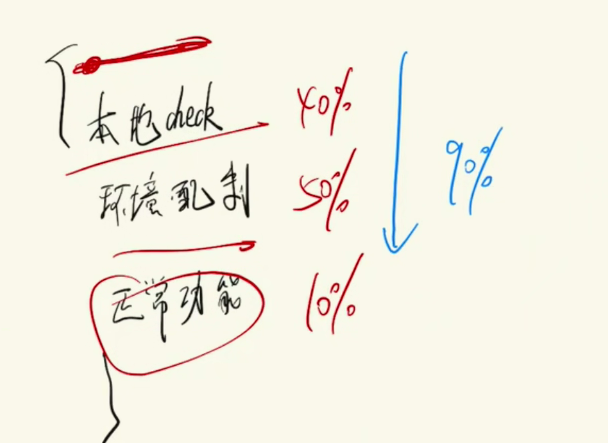 本地check 40%
环境配制 50%
90%
正常功能 10%